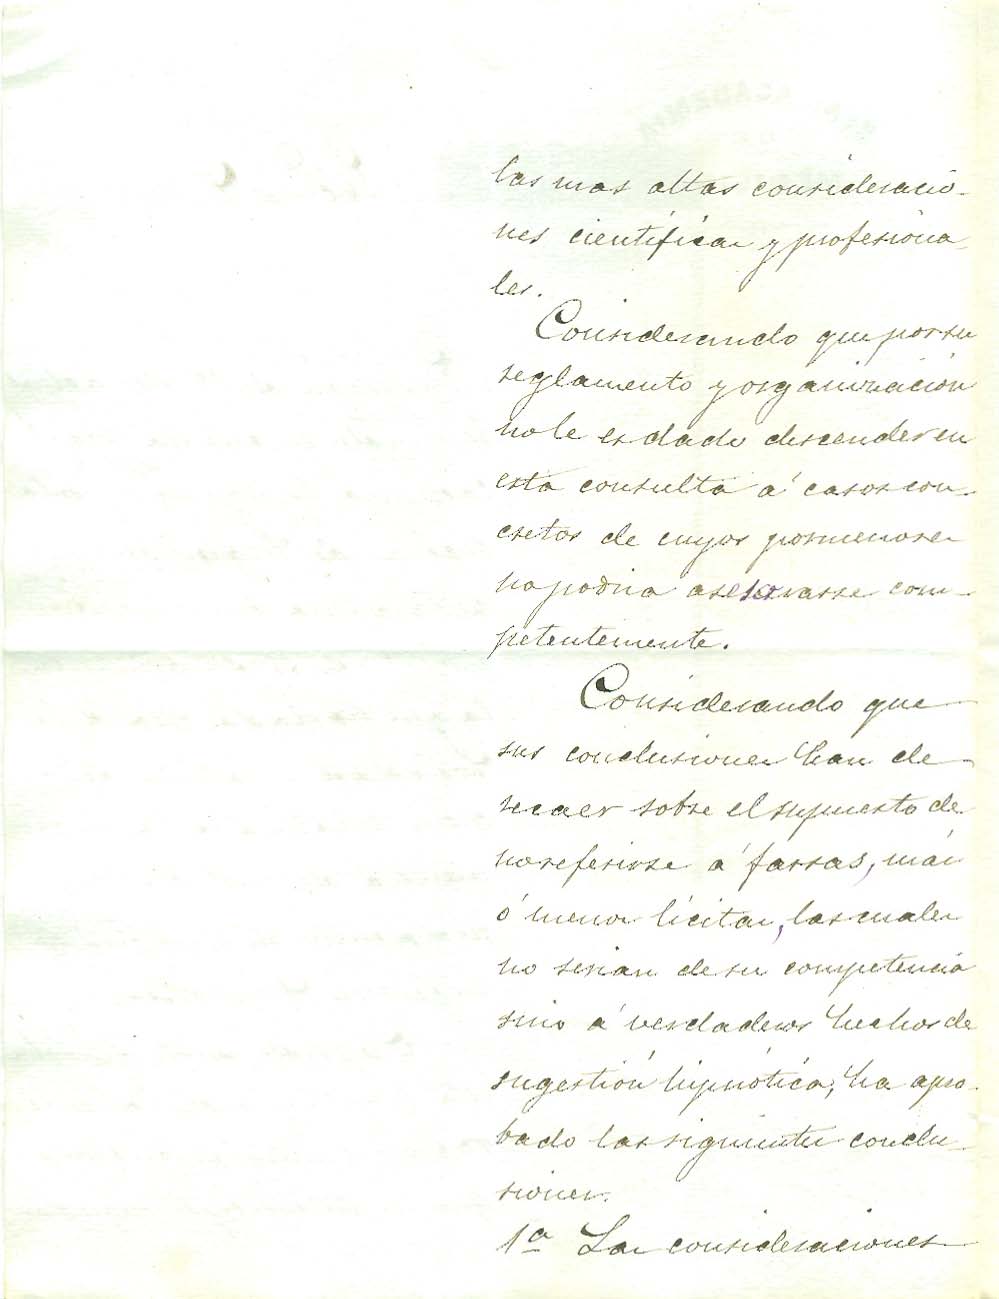 las mas altas consideracio-
nes cientificas y profesiona-
les.
Considerando que por su
reglamento y organización
no le es dado descender en
esta consulta á casos con-
cretos de cuyos pormenores
no podria asesorarse com-
petentemente.
Considerando que
sus conclusiones han de
recaer sobre el supuesto de
no referirse á farsas, más
ó menos lícitas, las cuales
no serian de su competencia
sino á verdaderos hechos de
sugestión hipnótica, ha apro-
bado las siguientes conclu-
siones.
1ª Las consideraciones